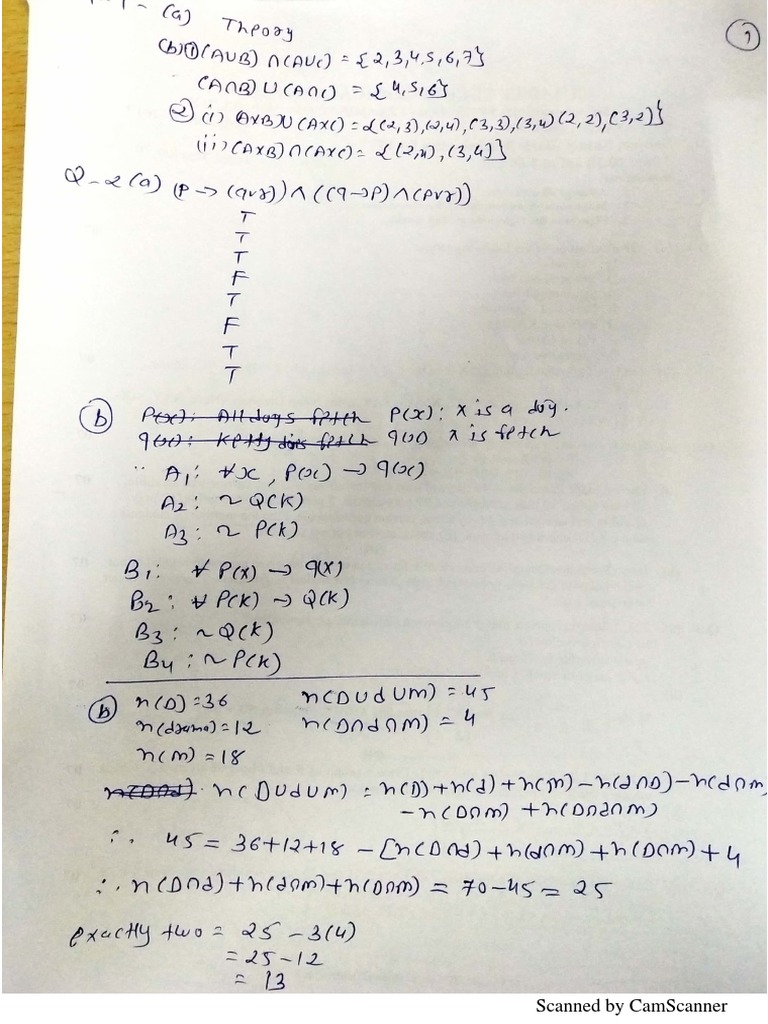 - (a) Theory
1
(b) ① (A∪B) ∩ (A∪C) = {2,3,4,5,6,7}
(A∩B) ∪ (A∩C) = {4,5,6}
② (i) (A×B)∪(A×C) = {(2,3),(2,4),(3,3),(3,4)(2,2),(3,2)}
(ii) (A×B)∩(A×C) = {(2,4),(3,4)}
Q-2(a) (P → (q∨r)) ∧ ((q→P) ∧ (P∨r))
T
T
T
F
T
F
T
T
(b) P(x): All dogs fetch P(x): x is a dog.
q(x): Ketty does fetch q(x) x is fetch
∵ A1: ∀x, P(x) → q(x)
A2: ~Q(K)
A3: ~P(K)
B1: ∀ P(x) → q(x)
B2: ∀ P(K) → Q(K)
B3: ~Q(K)
B4: ~P(K)
(b) n(D) = 36 n(D∪d∪m) = 45
n(drama) = 12 n(D∩d∩m) = 4
n(m) = 18
n(D∩d). n(D∪d∪m) = n(D)+n(d)+n(m)-n(d∩D)-n(d∩m)
-n(D∩m) + n(D∩d∩m)
∴ 45 = 36+12+18 -[n(D∩d)+n(d∩m)+n(D∩m)+4
∴ n(D∩d)+n(d∩m)+n(D∩m) = 70-45 = 25
exactly two = 25 - 3(4)
= 25-12
= 13
Scanned by CamScanner